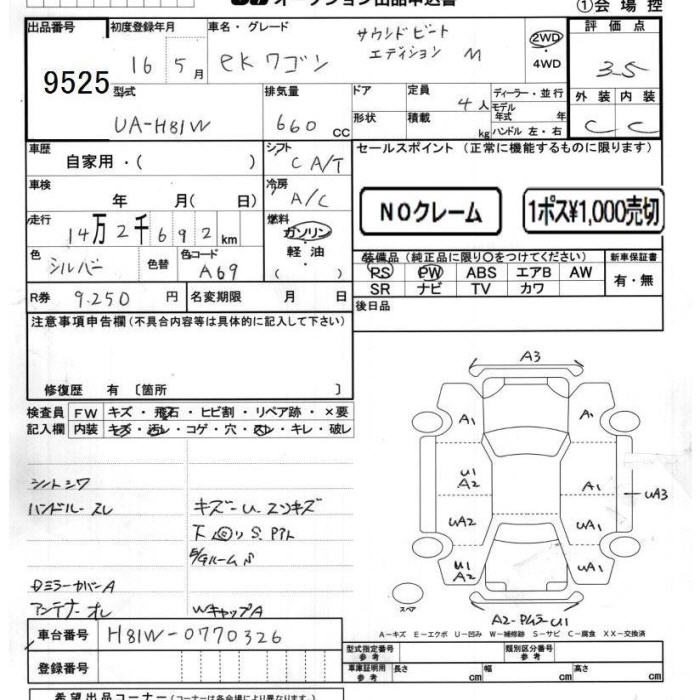 オークション出品申込書
①会場控
出品番号 9525
初度登録年月 16 5月
車名・グレード ekワゴン サウンドビート エディション M
2WD ・ 4WD
評価点 3.5
型式 UA-H81W
排気量 660 CC
ドア 形状
定員 4人
積載 kg
ディーラー・並行
モデル年式 年
ハンドル 左・右
外装 C 内装 C
車歴 自家用・( )
シフト C A/T
セールスポイント (正常に機能するものに限ります)
車検 年 月( 日)
冷房 A/C
NOクレーム
1ポス¥1,000売切
走行 14万2千692km
燃料 ガソリン・軽油・( )
色 シルバー 色替 色コード A69
装備品(純正品に限り○をつけてください)
PS PW ABS エアB AW
SR ナビ TV カワ
新車保証書 有・無
R券 9.250円 名変期限 月 日
後日品
注意事項申告欄(不具合内容等は具体的に記入して下さい)
修復歴 有 〔箇所 〕
検査員記入欄
FW キズ・飛石・ヒビ割・リペア跡・×要
内装 キズ・汚レ・コゲ・穴・スレ・キレ・破レ
シートシワ
ハンドルースレ
キズーU エクキズ
下回り S.Pアト
E/Gルーム S
Dミラーカバー A
アンテナ オレ
WキャップA
A3
A1 A1
U1 A2 A1
UA3
UA2 UA1
U1 A2 UA1
スペア
A2-Pムラ-U1
A-キズ E-エクボ U-凹み W-補修跡 S-サビ C-腐食 XX-交換済
車台番号 H81W-0770326
登録番号
型式指定番号 参考
類別区分番号 参考
車庫証明用 参考 長さ cm 幅 cm 高さ cm
希望出品コーナー(コーナー名は各会場により異なります)